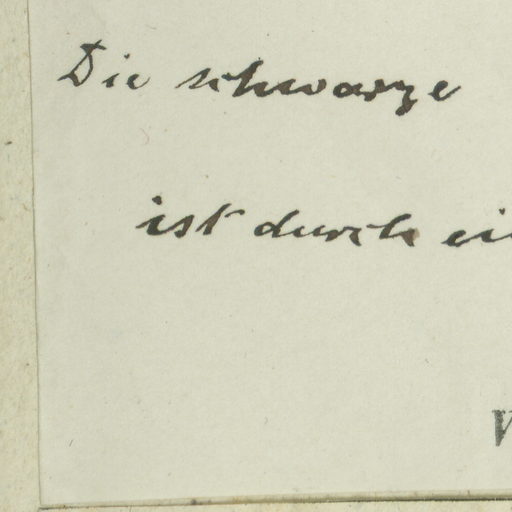 Die schwarze
ist durch ei